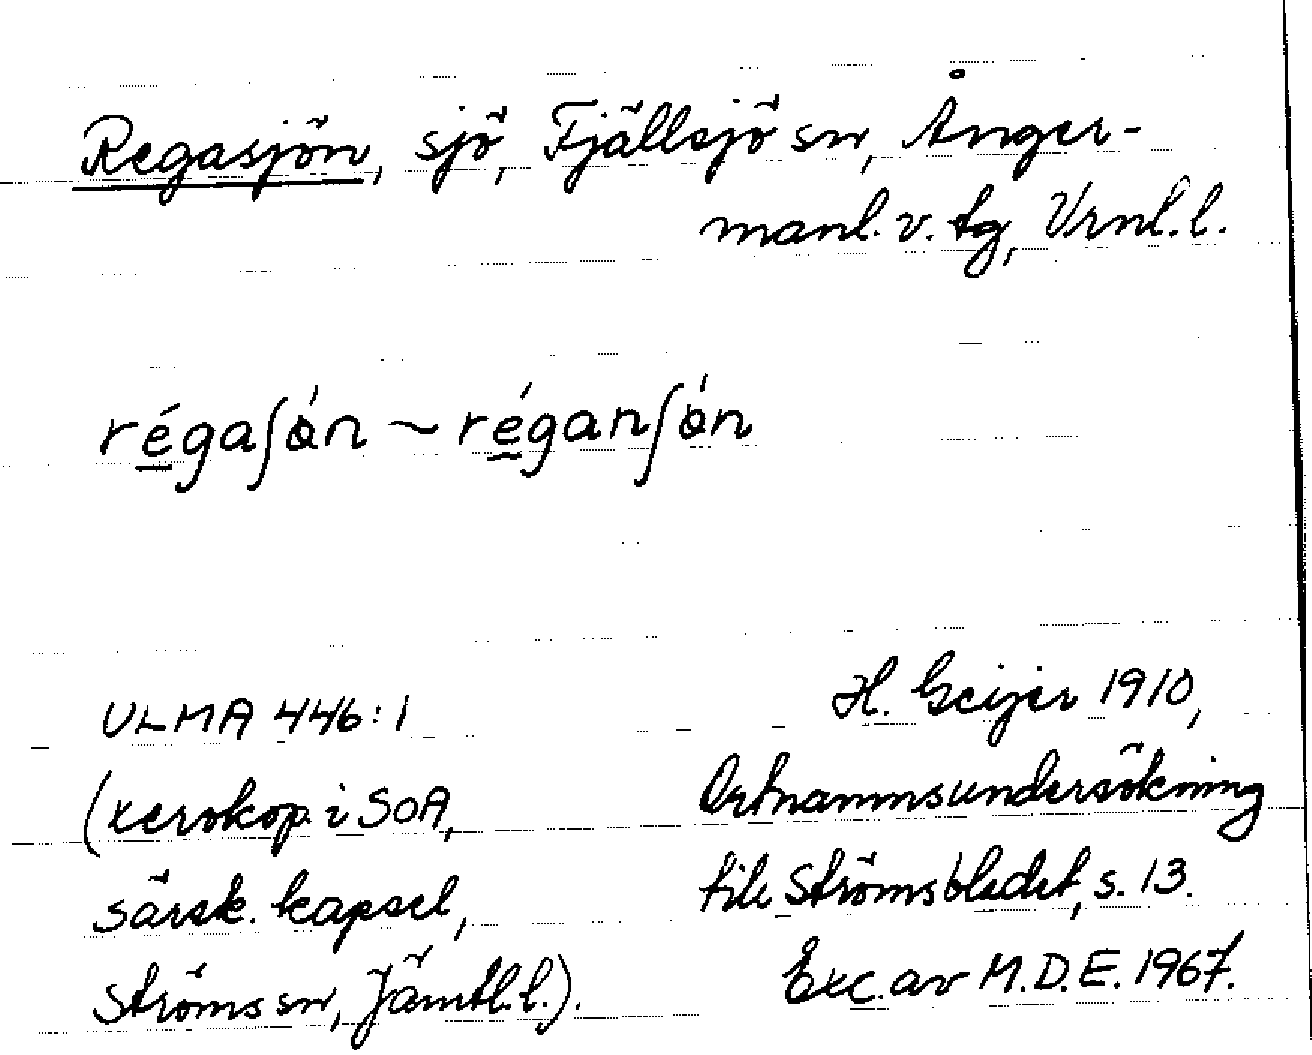 Regasjön, sjö, Fjällsjö sn, Ånger-
manl. v. tg, Vrnl. l.
régaʃòn ~ réganʃòn
ULMA 446:1
(xerokop. i SOA,
särsk. kapsel,
Ströms sn, Jämtl. l.).
H. Geijer 1910,
Ortnamnsundersökning
till Strömsbladet, s. 13.
Exc. av M.D.E. 1967.